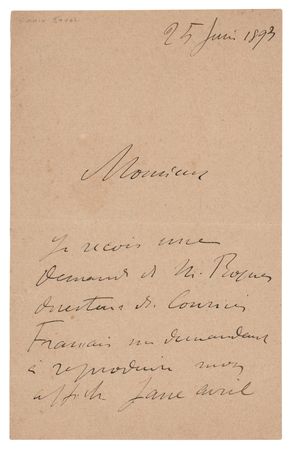 25 Juin 1893
Monsieur
Je reçois une
demande de M. Roques
directeur du Courrier
Français me demandant
à reproduire mon
affiche Jane Avril